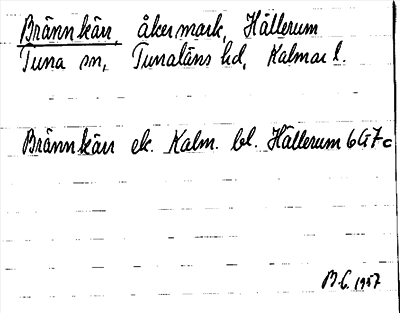 Brännkärr, åkermark, Hällerum
Tuna sn, Tunaläns hd, Kalmar l.
Brännkärr ek. Kalm. bl. Hällerum 6G7c
B.C. 1957